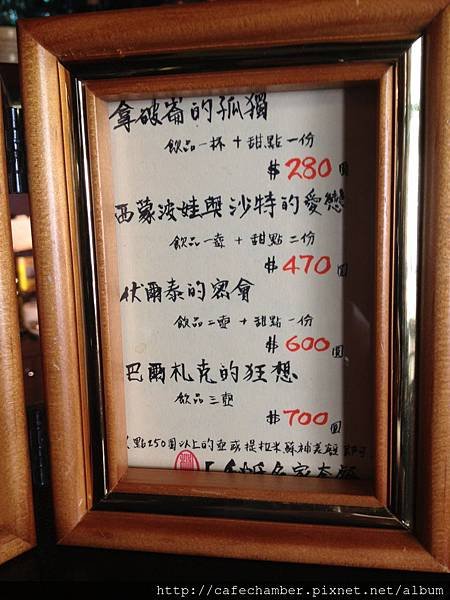 拿破崙的孤獨
飲品一杯 + 甜點一份
$280圓
西蒙波娃與沙特的愛戀
飲品一壺 + 甜點二份
$470圓
伏爾泰的密會
飲品二壺 + 甜點一份
$600圓
巴爾札克的狂想
飲品三壺
$700圓
點250圓以上的壺或提拉米蘇補差額
http://cafechamber.pixnet.net/album